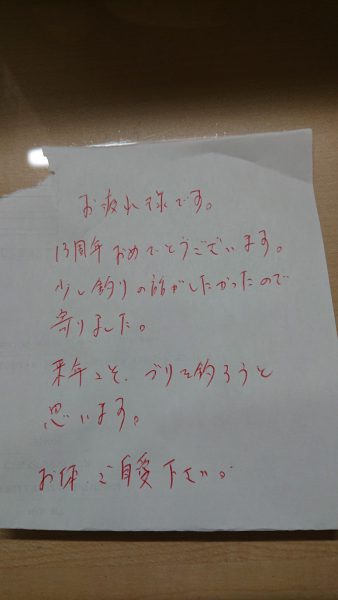 お疲れ様です。
13周年おめでとうございます。
少し釣りの話がしたかったので
寄りました。
来年こそ、ブリを釣ろうと
思います。
お体、ご自愛下さい。